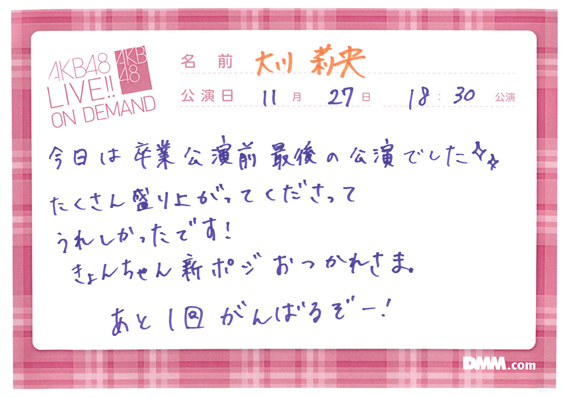 AKB48
LIVE!!
ON DEMAND
AKB
48
名前 大川莉央
公演日 11月27日 18:30公演
今日は卒業公演前最後の公演でした☆☆
たくさん盛り上がってくださって
うれしかったです!
きょんちゃん新ポジおつかれさま。
あと1回がんばるぞー!
DMM.com